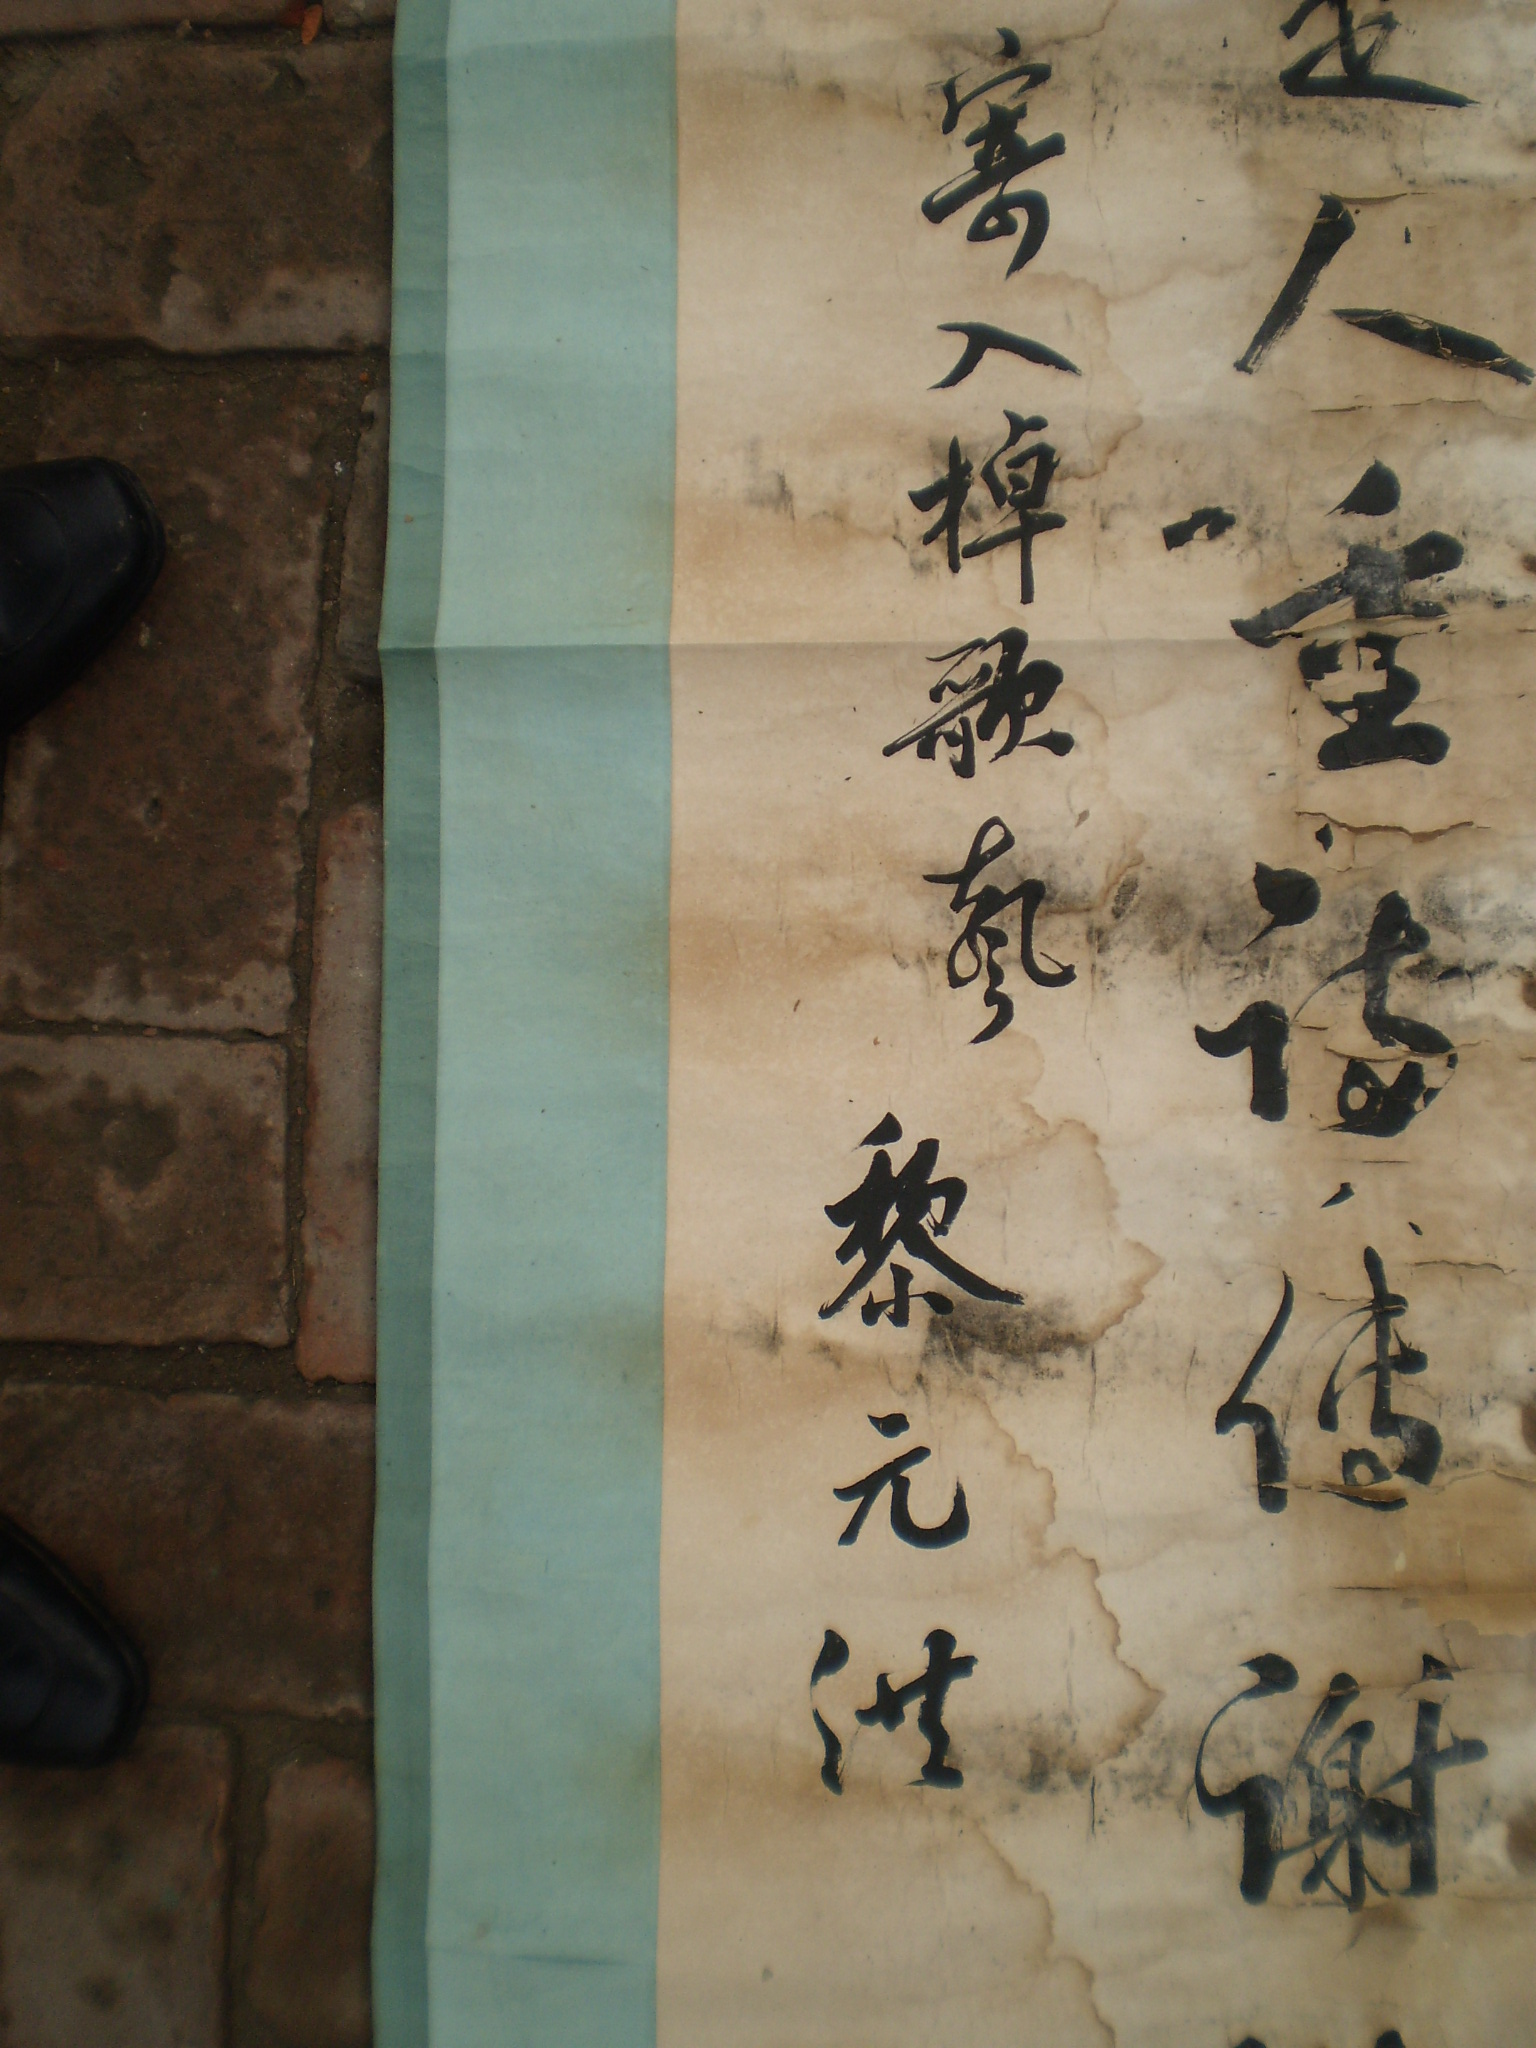 楚人重詩傳謝
寄入棹歌聲 黎元洪